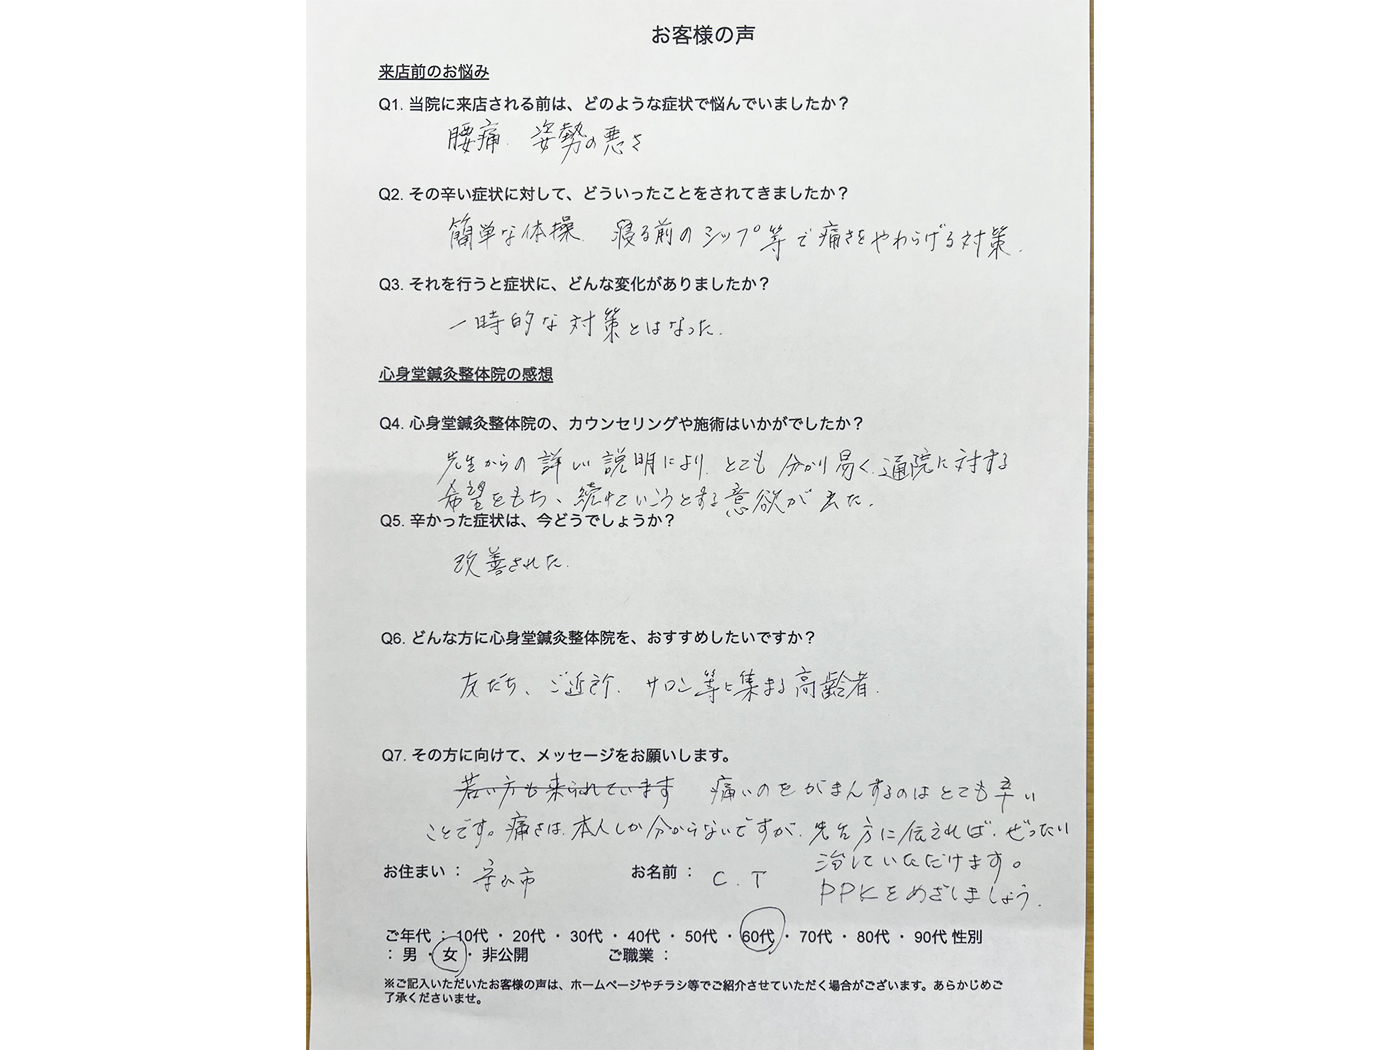 お客様の声
来店前のお悩み
Q1. 当院に来店される前は、どのような症状で悩んでいましたか？
腰痛. 姿勢の悪さ
Q2. その辛い症状に対して、どういったことをされてきましたか？
簡単な体操. 寝る前のシップ等で痛さをやわらげる対策.
Q3. それを行うと症状に、どんな変化がありましたか？
一時的な対策とはなった.
心身堂鍼灸整体院の感想
Q4. 心身堂鍼灸整体院の、カウンセリングや施術はいかがでしたか？
先生からの詳しい説明により. とても分かり易く. 通院に対する
希望をもち、続けていこうとする意欲が出た.
Q5. 辛かった症状は、今どうでしょうか？
改善された.
Q6. どんな方に心身堂鍼灸整体院を、おすすめしたいですか？
友だち、ご近所. サロン等に集まる高齢者.
Q7. その方に向けて、メッセージをお願いします。
若い方も来られています 痛いのをがまんするのはとても辛い
ことです。痛さは. 本人しか分からないですが. 先生方に伝えれば. ぜったい
治していただけます。
PPKをめざしましょう.
お住まい ： 守山市 お名前 ： C. T
ご年代 ： 10代 ・ 20代 ・ 30代 ・ 40代 ・ 50代 ・ 60代 ・ 70代 ・ 80代 ・ 90代 性別
： 男 ・ 女 ・ 非公開 ご職業 ：
※ご記入いただいたお客様の声は、ホームページやチラシ等でご紹介させていただく場合がございます。あらかじめご
了承くださいませ。